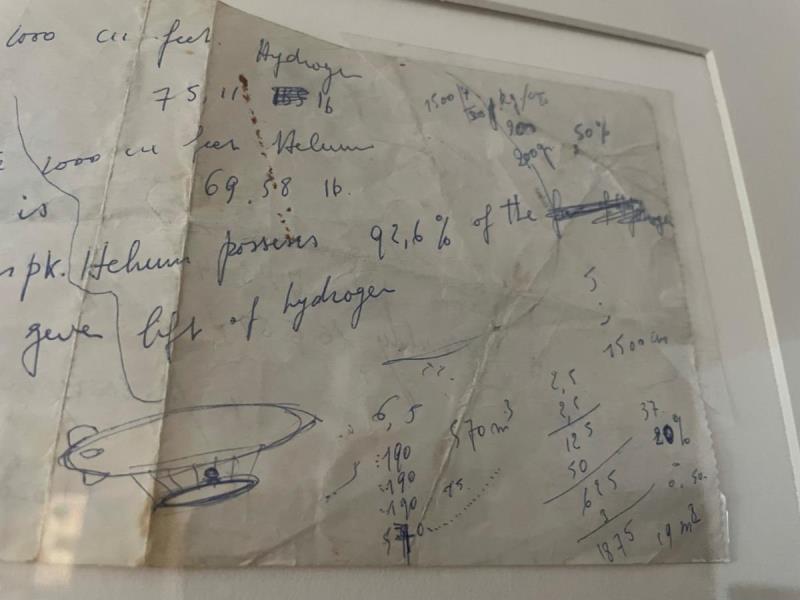 1000 cu feet.
Hydrogen
75,11 lb
1000 cu feet Helium
69.58 lb.
is
Helium possesses 92,6% of the
given lift of hydrogen
1500
kg/
900
50%
200
1500 cm
6,5
190
190
190
570
570 m³
2,5
2,5
125
50
625
3
1875
37
20%
19 m³